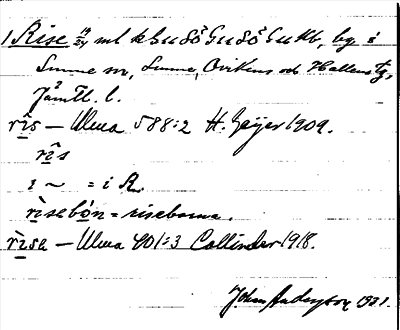 1 Rise 19/24 ml k Gu dö Gu dö Gu Nb, by i
Sunne sn, Sunne, Ovikens och Hallens tg,
Jämtl. l.
rîs – Ulma 588:2 H. Geijer 1909.
rîs
i ~ = i R.
rìsebón = riseborna.
rìse – Ulma 401:3 Collinder 1918.
John Anderson 1931.